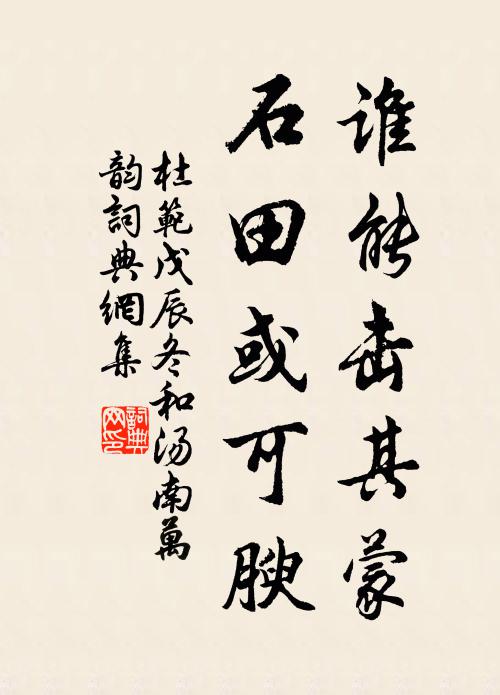 谁能击其蒙
石田或可腴
杜範戊辰冬和汤南萬
韵詞典網集
詞典
网印